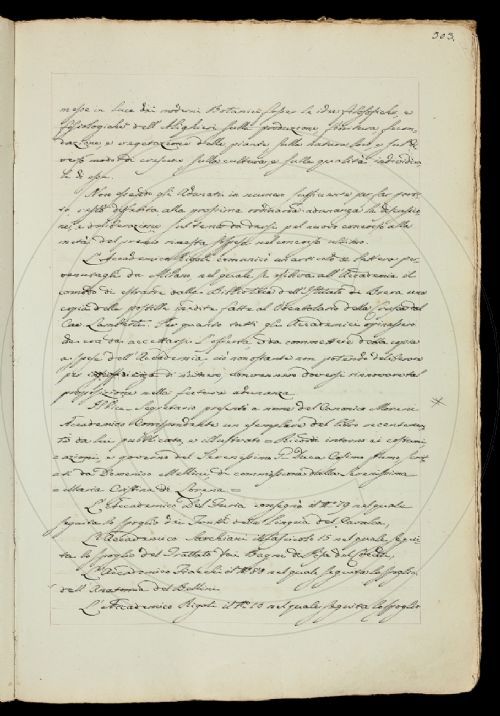 303.
messe in luce dai moderni Botanici sopra le idee filosofiche, e
fisiologiche dell'Alighieri sulla produzione, struttura, fecon
dazione, e vegetazione delle piante, sulla natura loro, e sul di
verso modo di crescere, sulla cultura, e sulla qualità individua
le di esse.
Non essendo gli Adunati in numero sufficiente per far parti
to restò differita alla prossima ordinaria adunanza la discussio
ne, e deliberazione sul tema da darsi pel nuovo concorso alla
metà del premio rimasta nel concorso ultimo.
L'Accademico Rigoli comunicò un articolo di lettera per
venutagli da Milano nel quale si esibiva all'Accademia il
comodo di estrarre dalla Biblioteca dell'Istituto di Brera una
copia delle postille inedite fatte al Vocabolario della Crusca dal
Cav. Lamberti. Per quanto tutti gli Accademici opinassero
da accettarsi l'offerta, e da commettersi d. copia
a spese dell'Accademia, ciò nonostante non potendo deliberare
per di numero, convennero doversi rinnovare tal
proposizione nella futura adunanza.
Il Vice Segretario presentò a nome del Canonico Moreni
Accademico Corrispondente un esemplare del libro recentemen
te da lui pubblicato, e illustrato = Ricordi intorno ai costumi,
azioni, e governo del Serenissimo G. Duca Cosimo Primo scrit
ti da Domenico Mellini di commissione della Serenissima
Maria Cristina di Lorena =
L'Accademico Del Furia consegnò il N.° 79 nel quale
seguita lo spoglio dei Fonti della Lingua del
L'Accademico Sarchiani il fascicolo 15 nel quale segui
ta lo spoglio del Trattato dei Bagni di Pisa del Cocchi,
L'Accademico il N.° nel quale seguita lo spoglio
dell'Anatomia del Bellini.
L'Accademico Rigoli il N.° 13 nel quale seguita lo spoglio